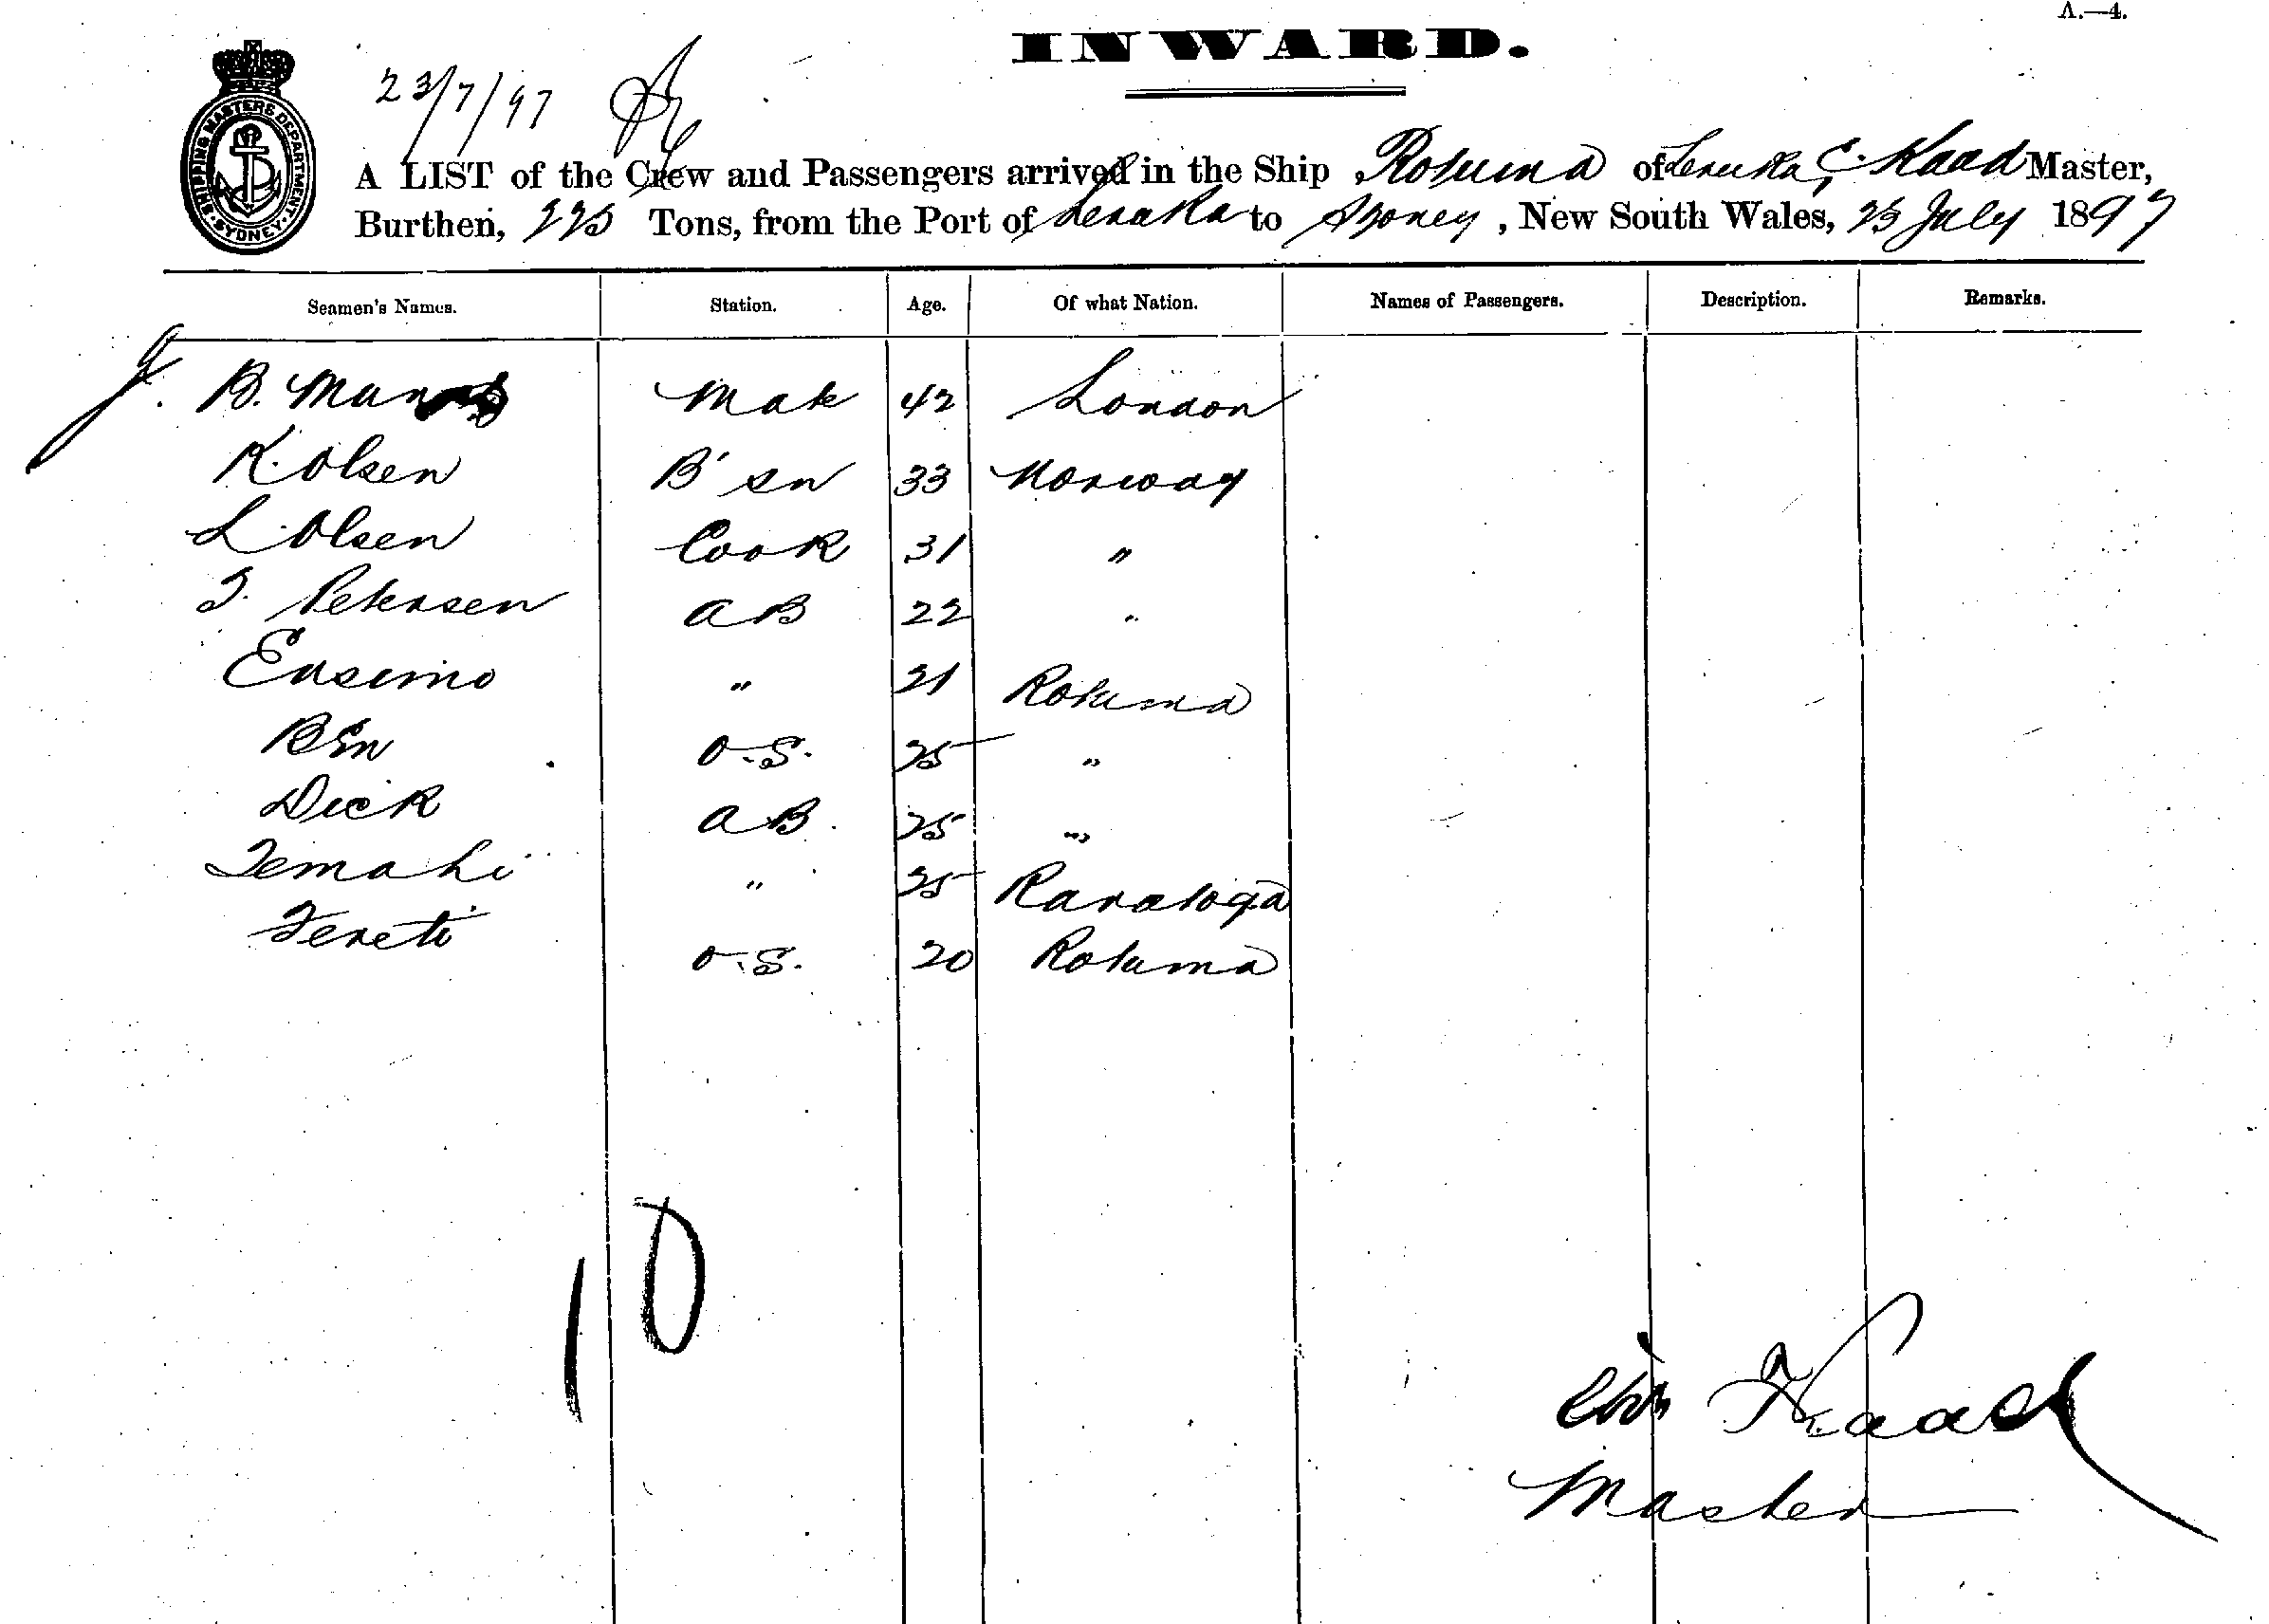 A.—4.
INWARD.
SHIPPING MASTERS DEPARTMENT
SYDNEY
23/7/97
A LIST of the Crew and Passengers arrived in the Ship Rotuma of Levuka, C. Kaad Master,
Burthen, 225 Tons, from the Port of Levuka to Sydney, New South Wales, 23 July 1897
Seamen's Names. Station. Age. Of what Nation. Names of Passengers. Description. Remarks.
J. B. Mate 42 London
K. Olsen B'sn 33 Norway
L. Olsen Cook 31 "
T. Petersen AB 22 "
" 21 Rotuma
Ben O.S. 25 "
Dick AB. 25 "
" 25 Raratoga
O.S. 20 Rotuma
10
Kaad
Master